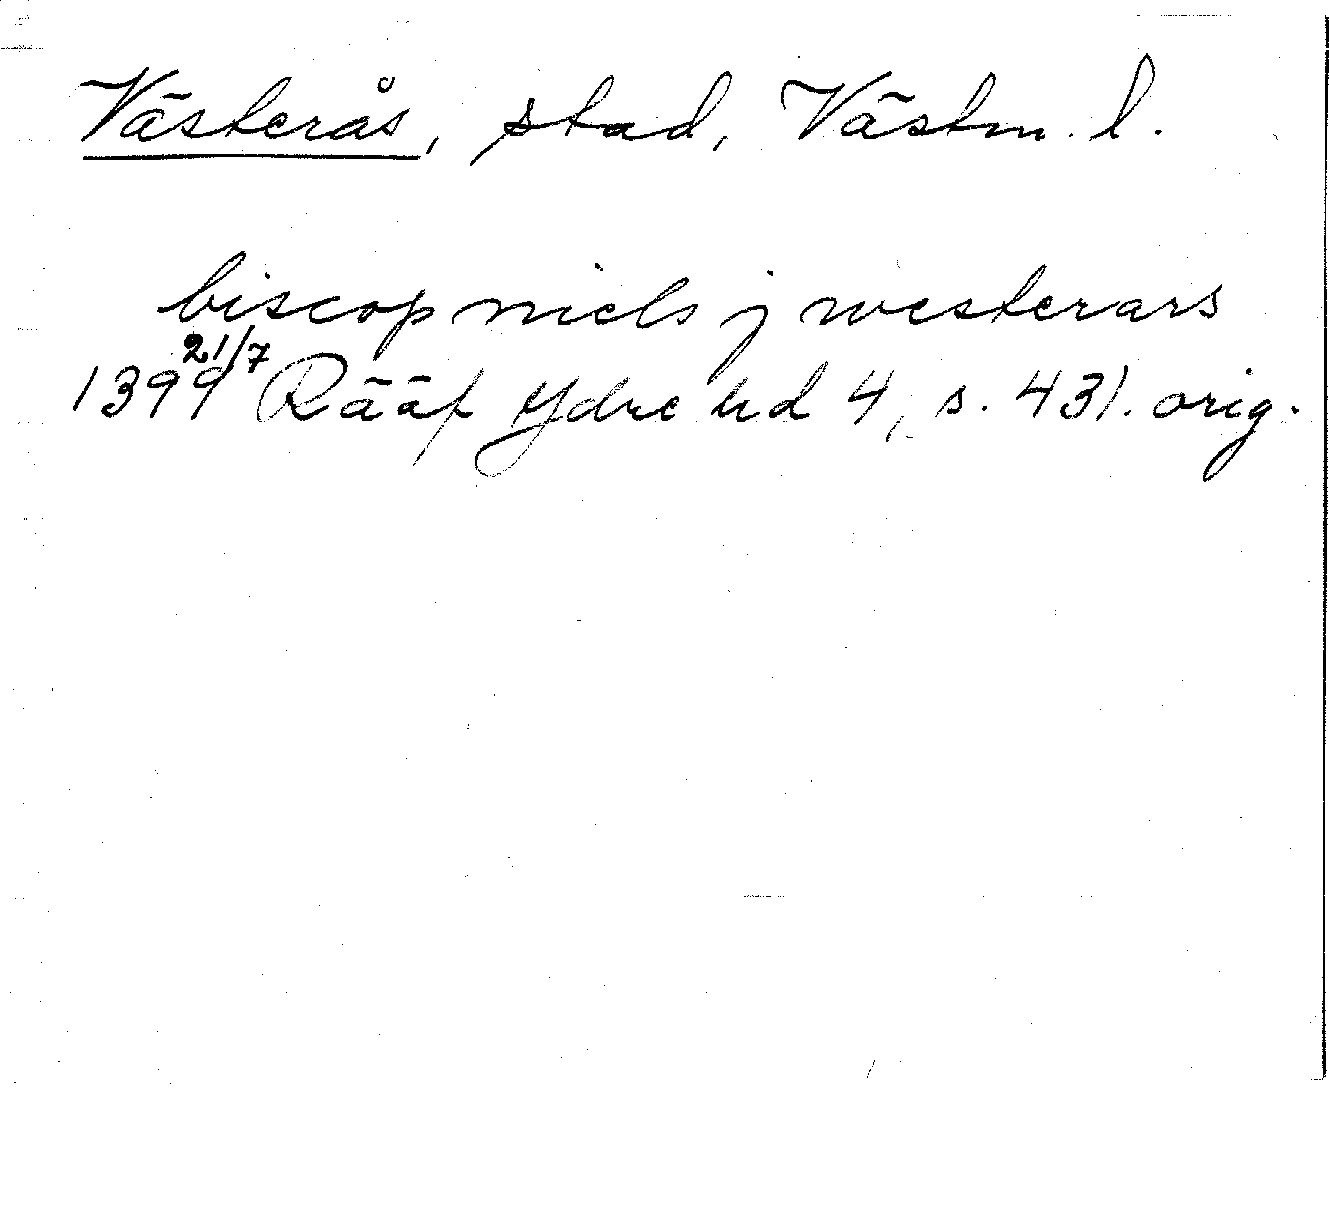 Västerås, stad, Västm. l.
biscop niels j westerars
1399 21/7 Rääf Ydre hd 4, s. 431. orig.